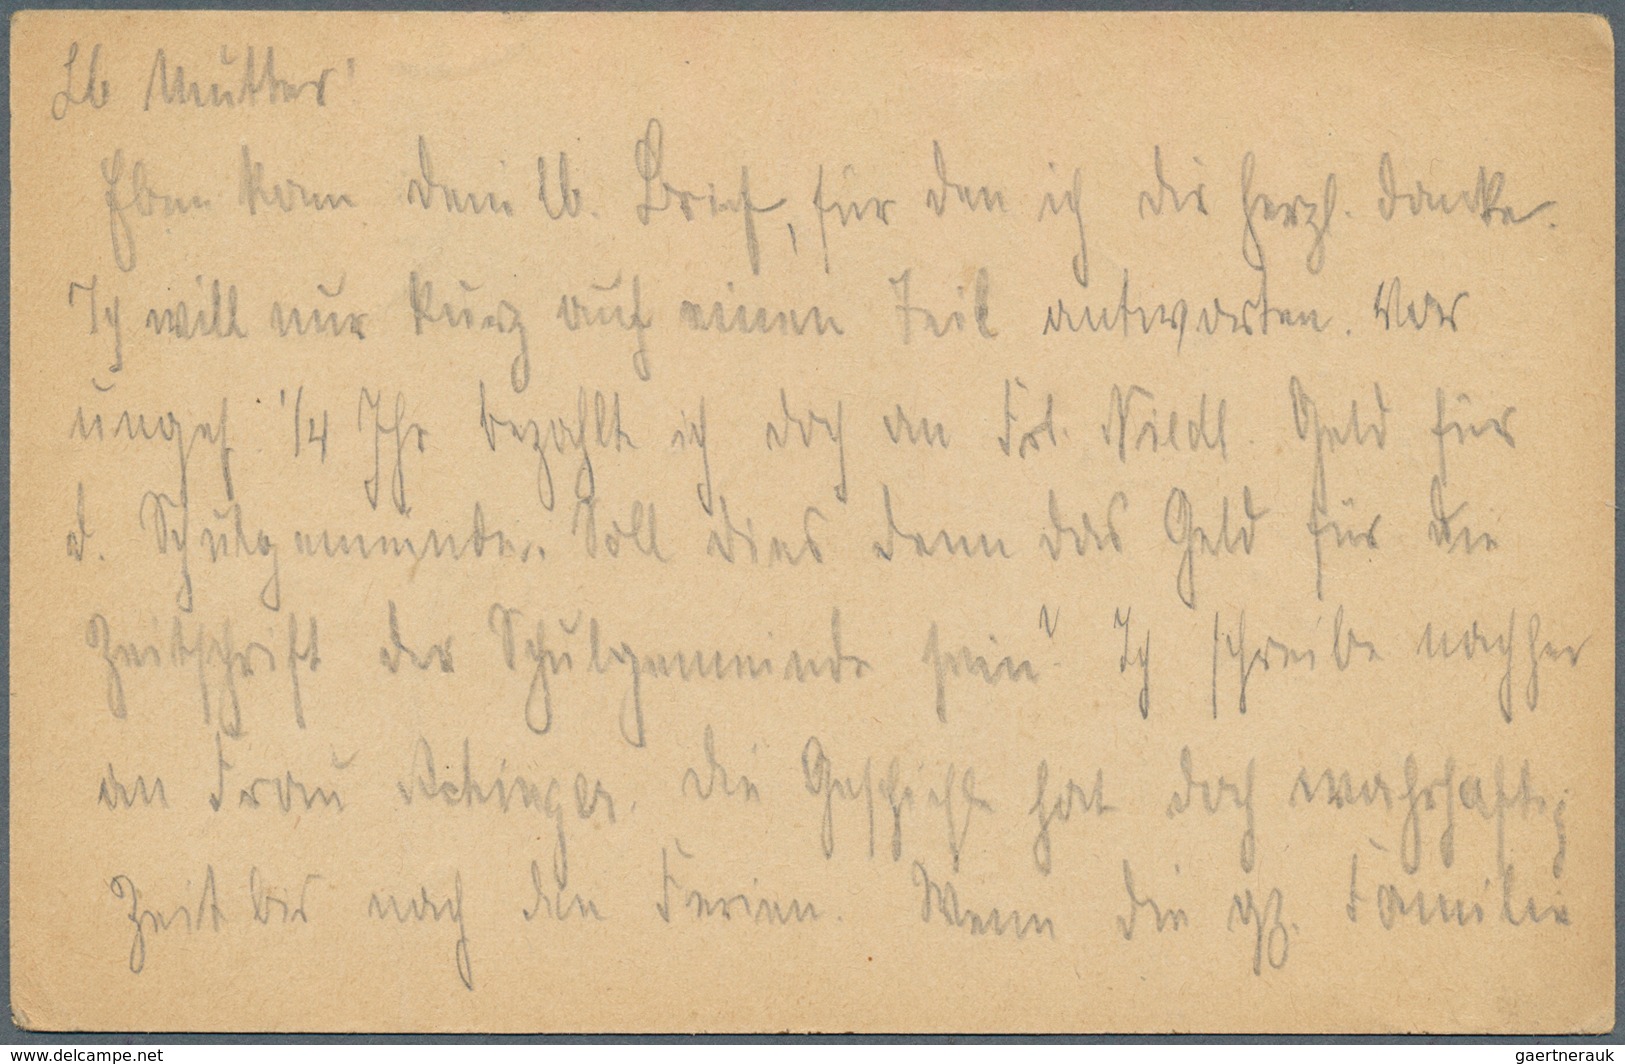 Lb Mutter!
Eben kam dein lb. Brief, für den ich dir herzl. danke.
Ich will nur kurz auf einen Teil antworten. Vor
ungef. 1/4 Jhr bezahlte ich doch an Frl. Niedl. Geld für
d. Schulgemeinde. Soll dies denn das Geld für die
Zeitschrift der Schulgemeinde sein? Ich schreibe nachher
an Frau. Die Geschichte hat doch wahrhaftig
Zeit bis nach den Ferien. Wenn die gz. Familie
www.delcampe.net
gaertnerauk